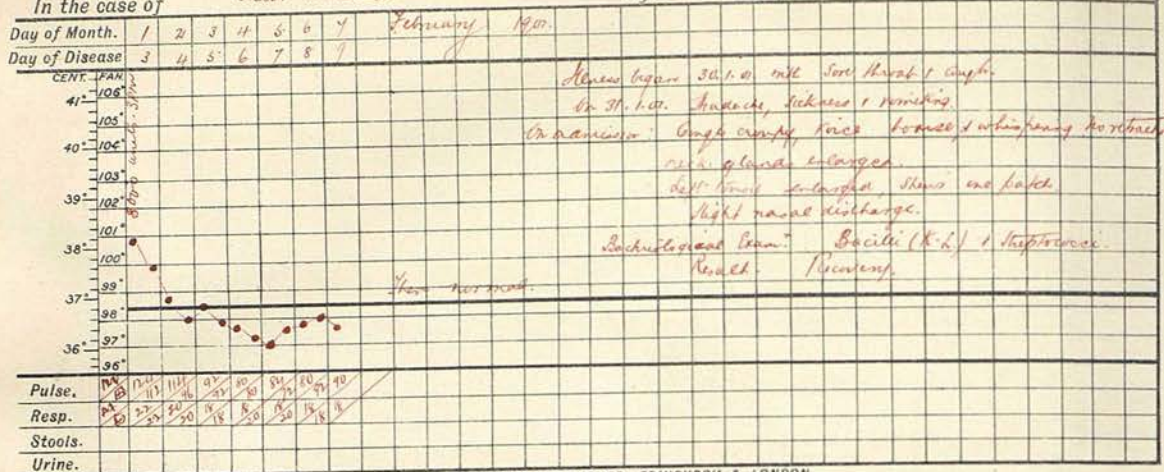 In the case of
Day of Month. 1 2 3 4 5 6 7 February 1901.
Day of Disease 3 4 5 6 7 8 9
CENT. FAH.
106°
41°
105°
40° 104°
103°
39° 102°
101°
38° 100°
99°
37° 98°
97°
36° 96°
8000 units. 3PM
Illness began 30.1.01 with Sore throat & cough.
On 31.1.01. Headache, Sickness & vomiting.
On admission: Cough croupy, voice hoarse & whispering No retract
neck glands enlarged.
Left tonsil enlarged, shews one patch
Slight nasal discharge.
Bacteriological Exam? Bacilli (K.L.) & Streptococci.
Result. Recovery.
Then normal.
Pulse. 120 112 114 96 92 92 80 80 84 72 80 92 90
Resp. 22 22 20 20 18 18 18 20 18 20 18 18 18
Stools.
Urine.
EDINBURGH & LONDON